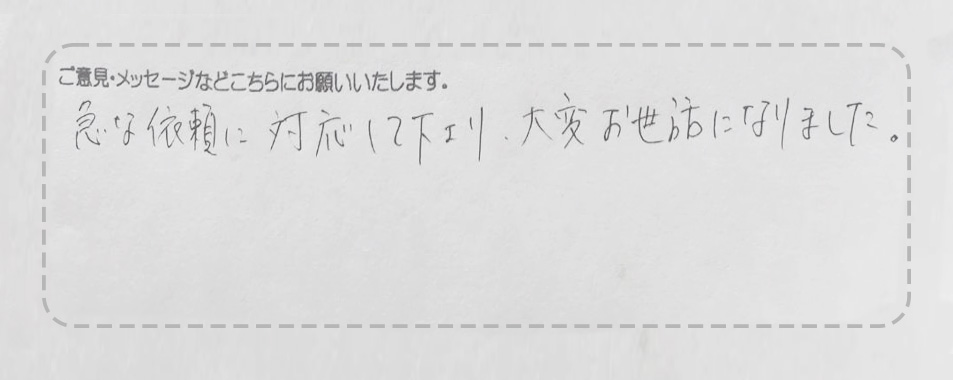 ご意見・メッセージなどこちらにお願いいたします。
急な依頼に対応して下さり、大変お世話になりました。